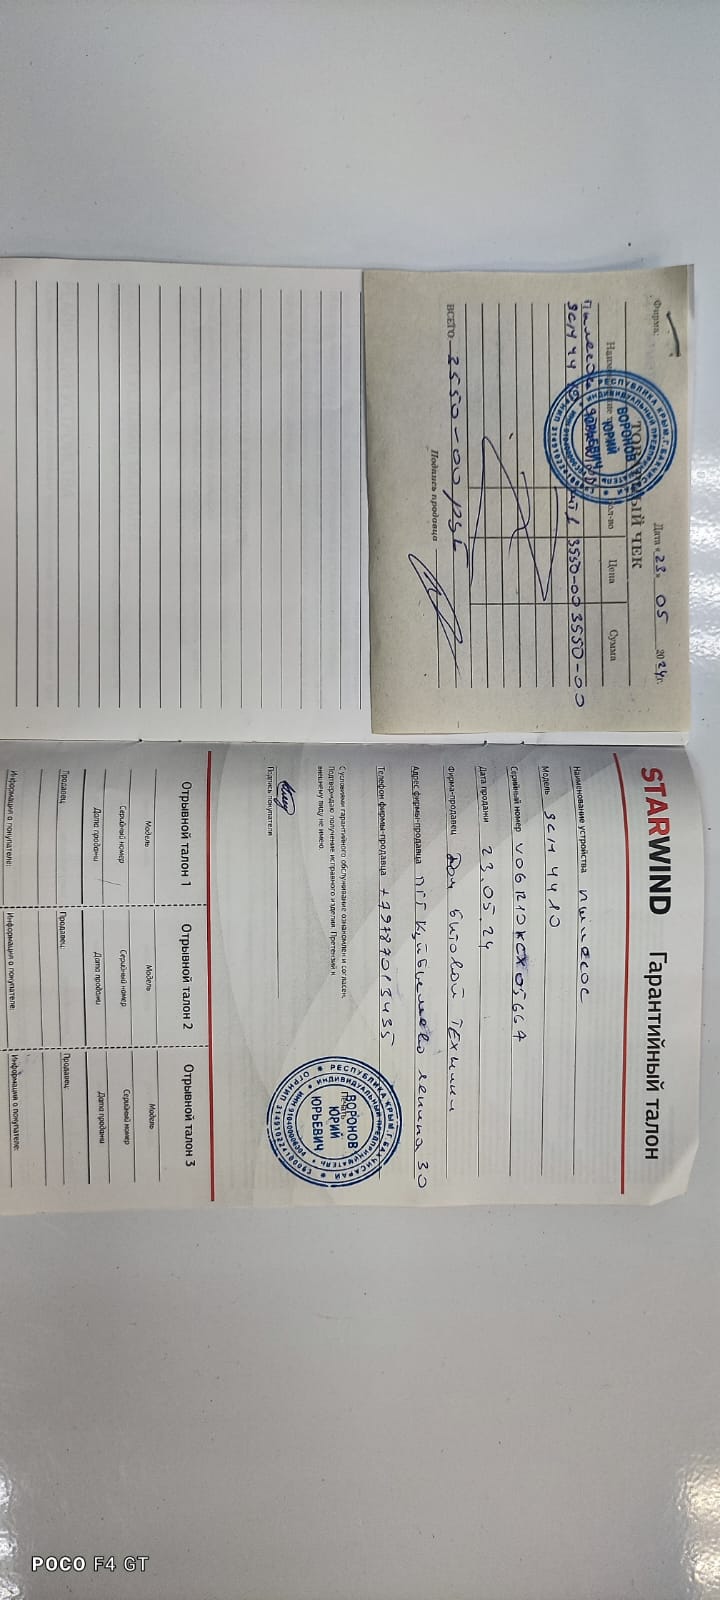 Фирма:
Дата «23» 05 2024г.
ТОВАРНЫЙ ЧЕК
Кол-во Цена Сумма
Пылесос
SCM 44 1 3550-00 3550-00
ВСЕГО 3550-00 руб
Подпись продавца
РЕСПУБЛИКА КРЫМ, Г. БАХЧИСАРАЙ
ИНДИВИДУАЛЬНЫЙ ПРЕДПРИНИМАТЕЛЬ
ВОРОНОВ
ЮРИЙ
ЮРЬЕВИЧ
STARWIND Гарантийный талон
Наименование устройства пылесос
Модель SCM 4410
Серийный номер
Дата продажи 23.05.24
Фирма-продавец Дом бытовой техники
Адрес фирмы-продавца ПГТ Куйбышево Ленина 30
Телефон фирмы-продавца +79787013435
С условиями гарантийного обслуживание ознакомлен и согласен.
Подтверждаю получение исправного изделия. Претензий к
внешнему виду не имею.
Подпись покупателя
Печать
РЕСПУБЛИКА КРЫМ, Г. БАХЧИСАРАЙ
ИНДИВИДУАЛЬНЫЙ ПРЕДПРИНИМАТЕЛЬ
ВОРОНОВ
ЮРИЙ
ЮРЬЕВИЧ
Отрывной талон 1 Отрывной талон 2 Отрывной талон 3
Модель Модель Модель
Серийный номер Серийный номер Серийный номер
Дата продажи Дата продажи Дата продажи
Продавец: Продавец: Продавец:
Информация о покупателе: Информация о покупателе: Информация о покупателе:
POCO F4 GT